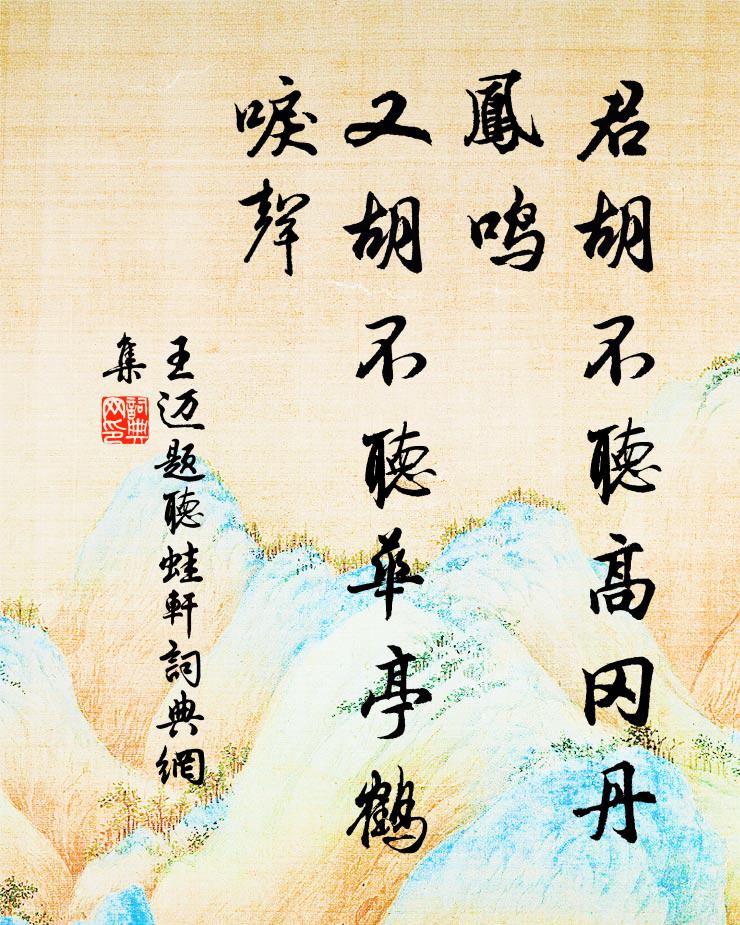 君胡不聽高冈丹
鳳鸣
又胡不聽華亭鶴
唳聲
王迈题聽蛙軒詞典網
集
詞典
网印